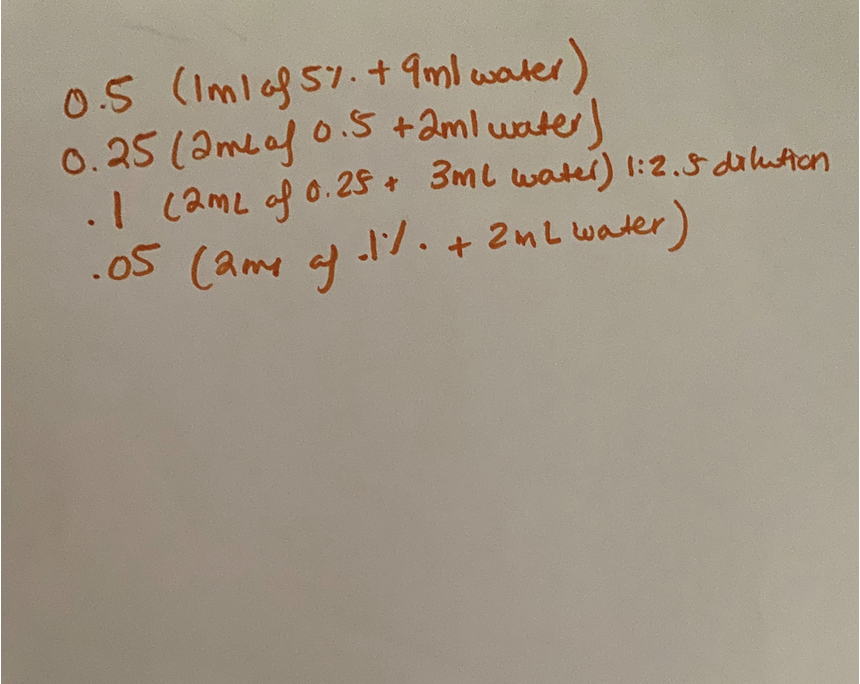 0.5 (1ml of 5%. + 9ml water)
0.25 (2mL of 0.5 + 2ml water)
.1 (2mL of 0.25 + 3mL water) 1:2.5 dilution
.05 (2ml of .1%. + 2mL water)